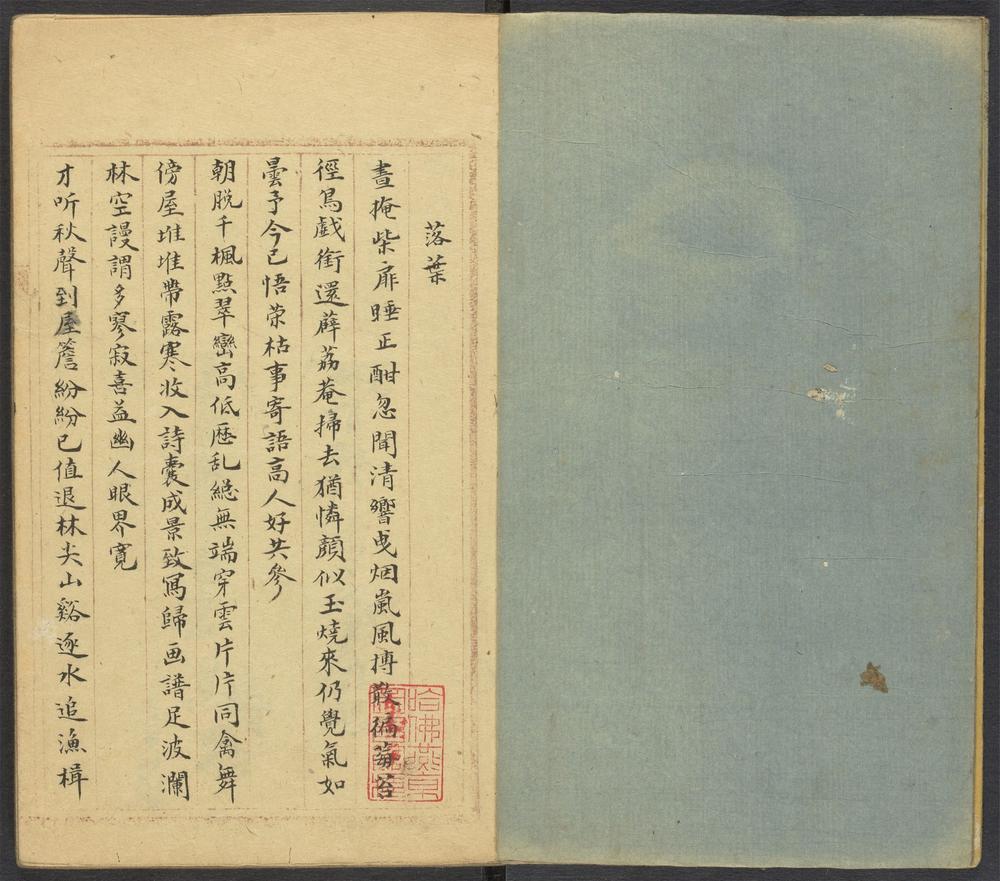 落葉
晝掩柴扉睡正酣忽聞清響曳烟嵐風摶散徧莓苔
徑鳥戲銜還薜荔菴掃去猶憐顏似玉燒來仍覺氣如
曇予今已悟荣枯事寄語高人好共參
朝脫千楓點翠巒高低歷乱總無端穿雲片片同禽舞
傍屋堆堆帶露寒收入詩囊成景致寫歸画譜足波瀾
林空謾謂多寥寂喜益幽人眼界寬
才听秋聲到屋簷紛紛已值退林尖山谿逐水追漁楫
哈佛燕京